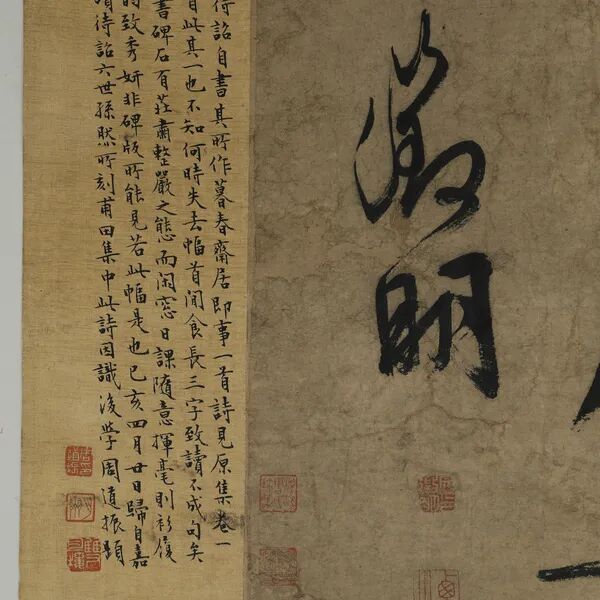 徵明
待詔自書其所作暮春齋居即事一首詩見原集卷一
此其一也不知何時失去幅首閒食長三字致讀不成句矣
書碑石有莊肅整嚴之態而閑窗日課隨意揮毫則
致秀妍非碑版所能見若此幅是也己亥四月廿日歸自嘉
待詔六世孫然所刻甫田集中此詩因識後學周道振題